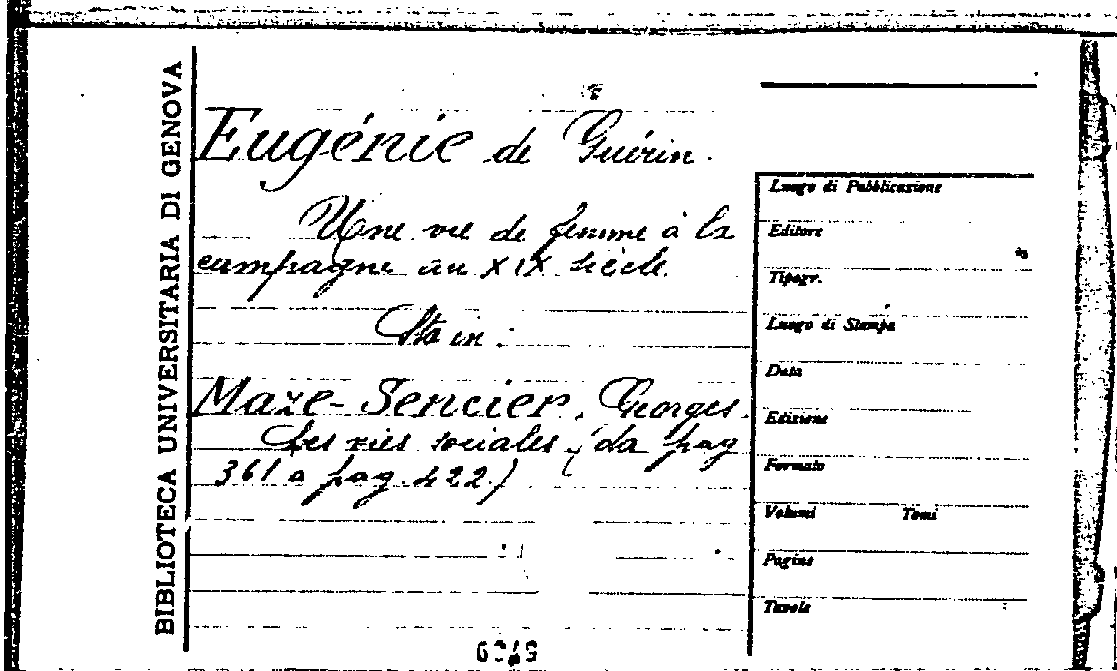 BIBLIOTECA UNIVERSITARIA DI GENOVA
Eugénie de Guérin.
Une vie de femme à la
campagne au XIX siècle.
Sta in:
Maze-Sencier, Georges.
Les vies sociales (da pag
361 a pag. 422.)
Luogo di Pubblicazione
Editore
Tipogr.
Luogo di Stampa
Data
Edizione
Formato
Volumi Tomi
Pagine
Tavole